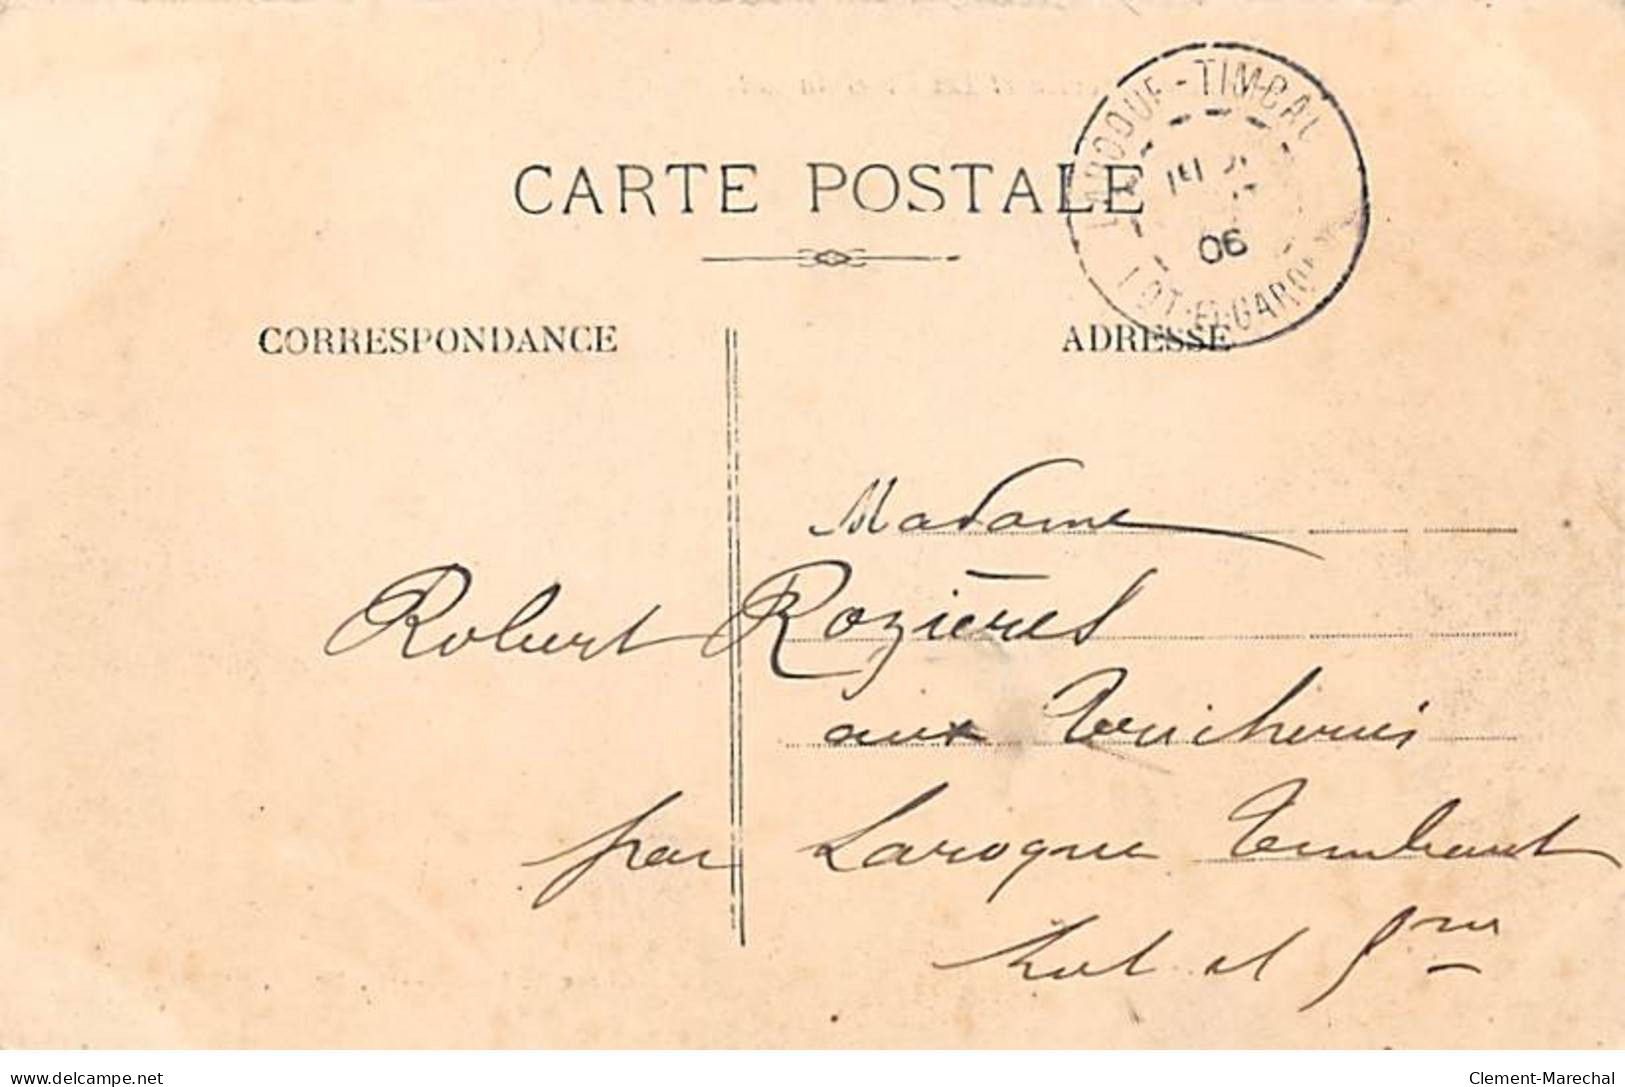 CARTE POSTALE
LAROQUE-TIMBAUT
06
LOT-ET-GARONNE
CORRESPONDANCE
ADRESSE
Madame
Robert Rozières
aux
par Laroque Timbaut
Lot et Gne
delcampe.net
Clement-Marechal